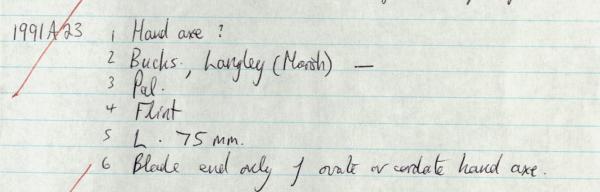 1991A23 1 Hand axe ?
2 Bucks., Langley (Marish) —
3 Pal.
4 Flint
5 L. 75 mm.
6 Blade end only of ovate or cordate hand axe.